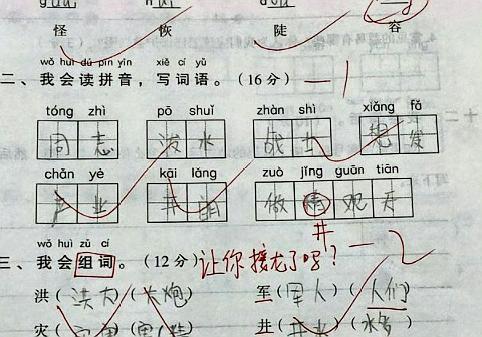 怪 恢 陡 容
wǒ huì dú pīn yīn xiě cí yǔ
二、我会读拼音，写词语。(16分) — 1
tóng zhì pō shuǐ zhàn shì xiǎng fǎ
同志 泼水 战士 想发
chǎn yè kāi lǎng zuò jǐng guān tiān
产业 开朗 做 观天
井
wǒ huì zǔ cí
三、我会组词。(12分) 让你接龙了吗？ — 2
洪( 洪力 )( 火炮 ) 军( 军人 )( 人们 )
灾( )( ) 井( 井水 )( )